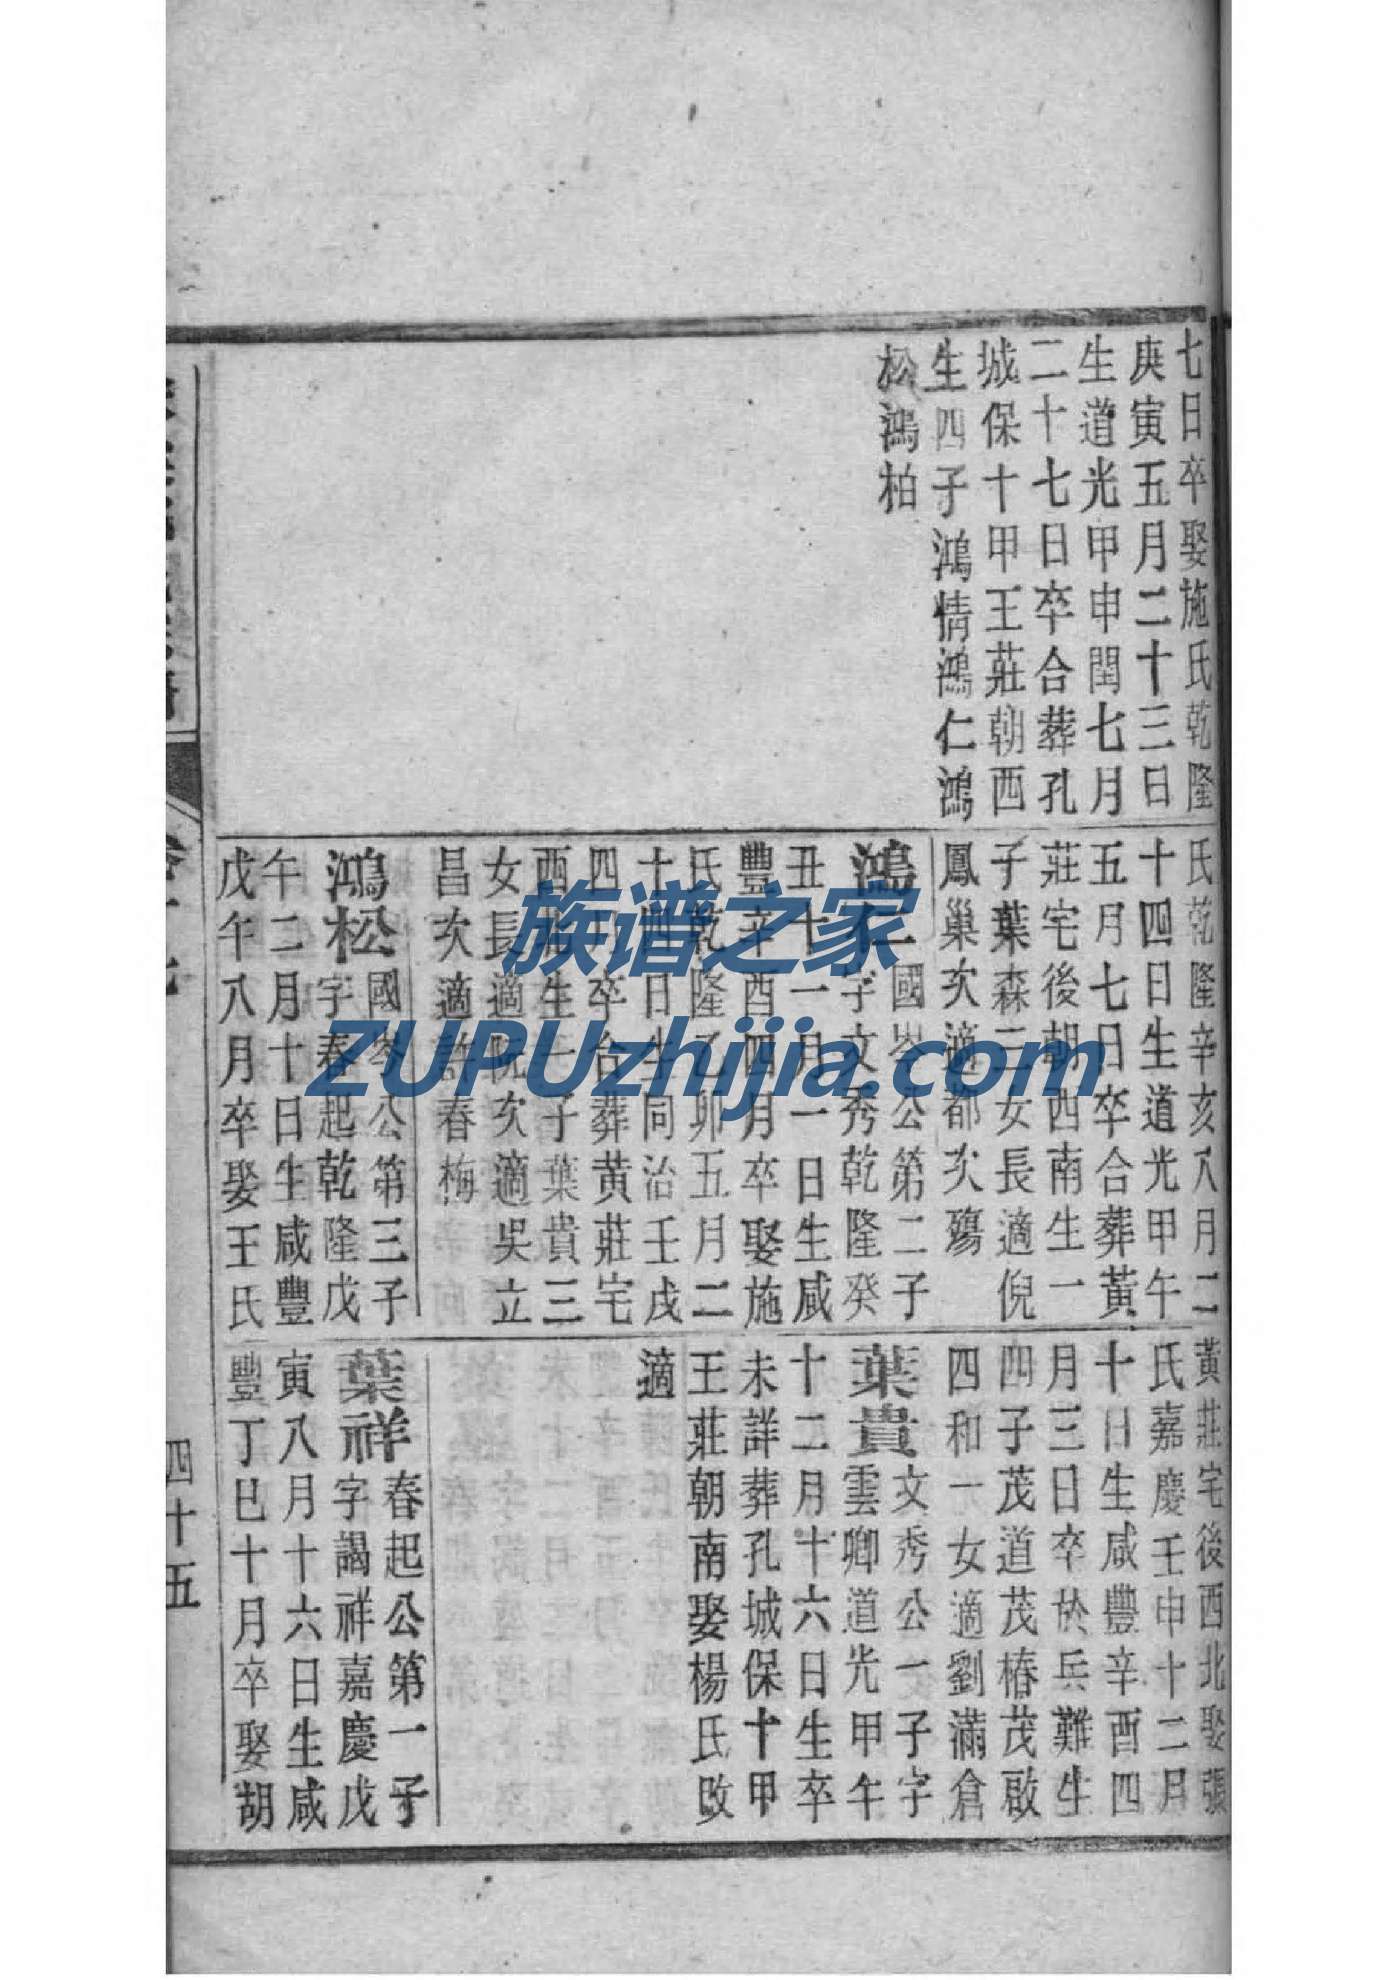 七日卒娶施氏乾隆
庚寅五月二十三日
生道光甲申閏七月
二十七日卒合葬孔
城保十甲王莊朝西
生四子鴻情鴻仁鴻
松鴻柏
氏乾隆辛亥八月二
十四日生道光甲午
五月七日卒合葬黃
莊宅後朝西南生一
子葉森二女長適倪
鳳巢次適都次殤
鴻仁國岑公第二子
字文秀乾隆癸
丑十一月一日生咸
豐辛酉四月卒娶施
氏乾隆乙卯五月二
十四日生同治壬戌
四月卒合葬黃莊宅
西北生一子葉貴三
女長適阮次適吳立
昌次適許春梅
鴻松國岑公第三子
字春起乾隆戊
午二月十日生咸豐
戊午八月卒娶王氏
黃莊宅後西北娶張
氏嘉慶壬申十二月
十日生咸豐辛酉四
月三日卒於兵難生
四子茂道茂椿茂啟
四和一女適劉滿倉
葉貴文秀公一子字
雲卿道光甲午
十二月十六日生卒
未詳葬孔城保十甲
王莊朝南娶楊氏改
適
葉祥春起公第一子
字謁祥嘉慶戊
寅八月十六日生咸
豐丁巳十月卒娶胡
四十五
族谱之家
ZUPUzhijia.com